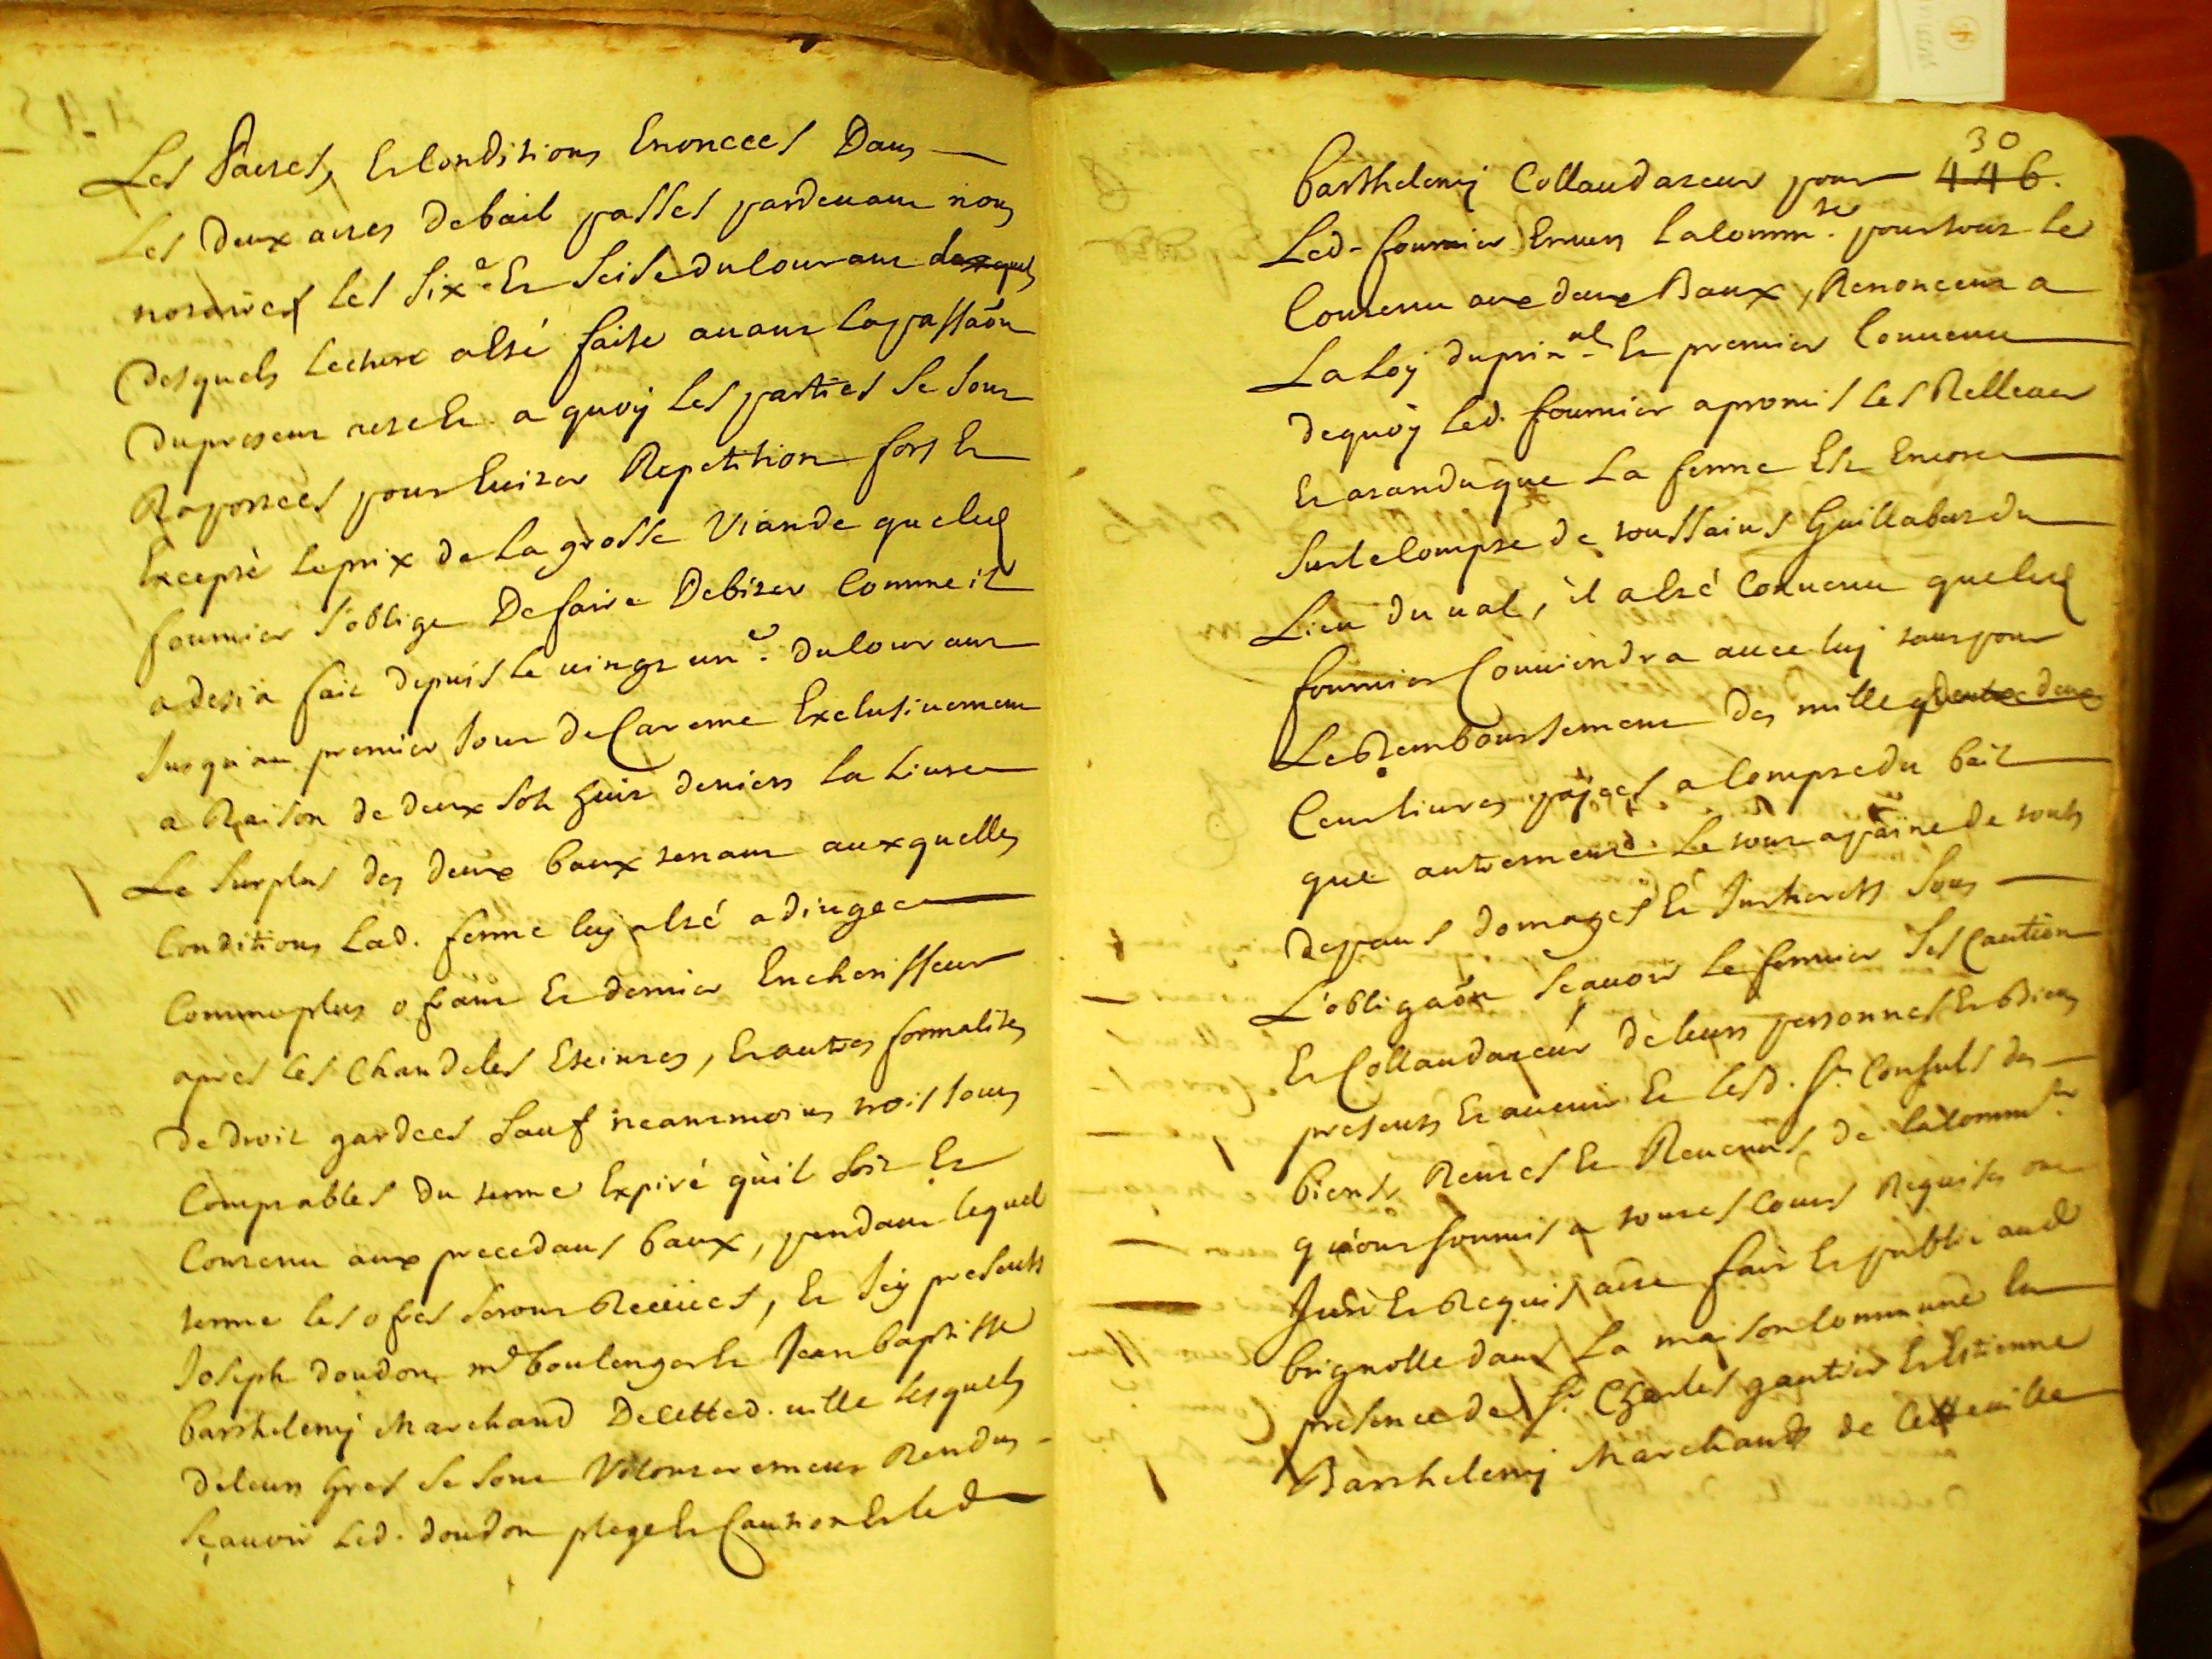 Les Pactes, Et Conditions Enoncees Dans
Les deux actes de bail passes pardevant nous
notaires les six.e Et seise du courant desquels
desquels lecture a esté faite avant la passaôn
du present acte Et a quoy les parties se sont
Raportees pour Eviter Repetition fors Et
Excepté le prix de la grosse viande que led
fournier s'oblige De faire Debiter comme il
a desja fait depuis le vingt un.e du courant
Jusqu'au premier Jour de Careme Exclusivement
a Raison de deux sols huit deniers la Livre
Le surplus des deux baux tenant auxquelles
Conditions Lad. ferme luy a esté adiugee
Comme plus ofrant Et dernier Encherisseur
apres les Chandeles Eteintes, Et autres formalites
de droit gardees sauf neantmoins trois Jours
Comptables du terme Expiré qu'il soit Et
Contenu aux precedans baux, pendant lequel
terme les ofres seront Receües, Et Icy presents
Joseph doudon m.d boulenger Et Jean baptiste
barthelemy Marchand De cette d. ville lesquels
de leurs Gres se sont Volonterement Rendus
sçavoir Led. doudon plege Et Caution Et led
30
446.
barthelemy Collaudateur pour
Led. fournier Envers la Comm.té pour tout le
Contenu aux deux Baux, Renonceant a
La Loy du prin.al Et premier Convenu
de quoy Led. fournier a promis les Rellever
Et atandu que La ferme Est Encore
sur le Compte de toussains Guillabert du
Lieu du val, il a esté Convenu que led
fournier Conviendra avec luy tant pour
Le Remboursement des mille deux
Cent livres payees a Compte du bail
que autrement Le tout a paine de touts
depans domages Et Interests sous
L'obligaôn sçavoir le fermier ses Caution
Et Collaudateur de leurs personnes Et Biens
presents Et avenir Et lesd. S.rs Consuls des
biens, Rentes Et Revenus de la Comm.té
qu'ont soumis a toutes Cours Requises ont
Juré Et Requis acte fait Et publié aud
brignolle dans La maison Commune En
presence de S.r Charles gautier Et Estienne
Barthelemy Marchands de Cette ville